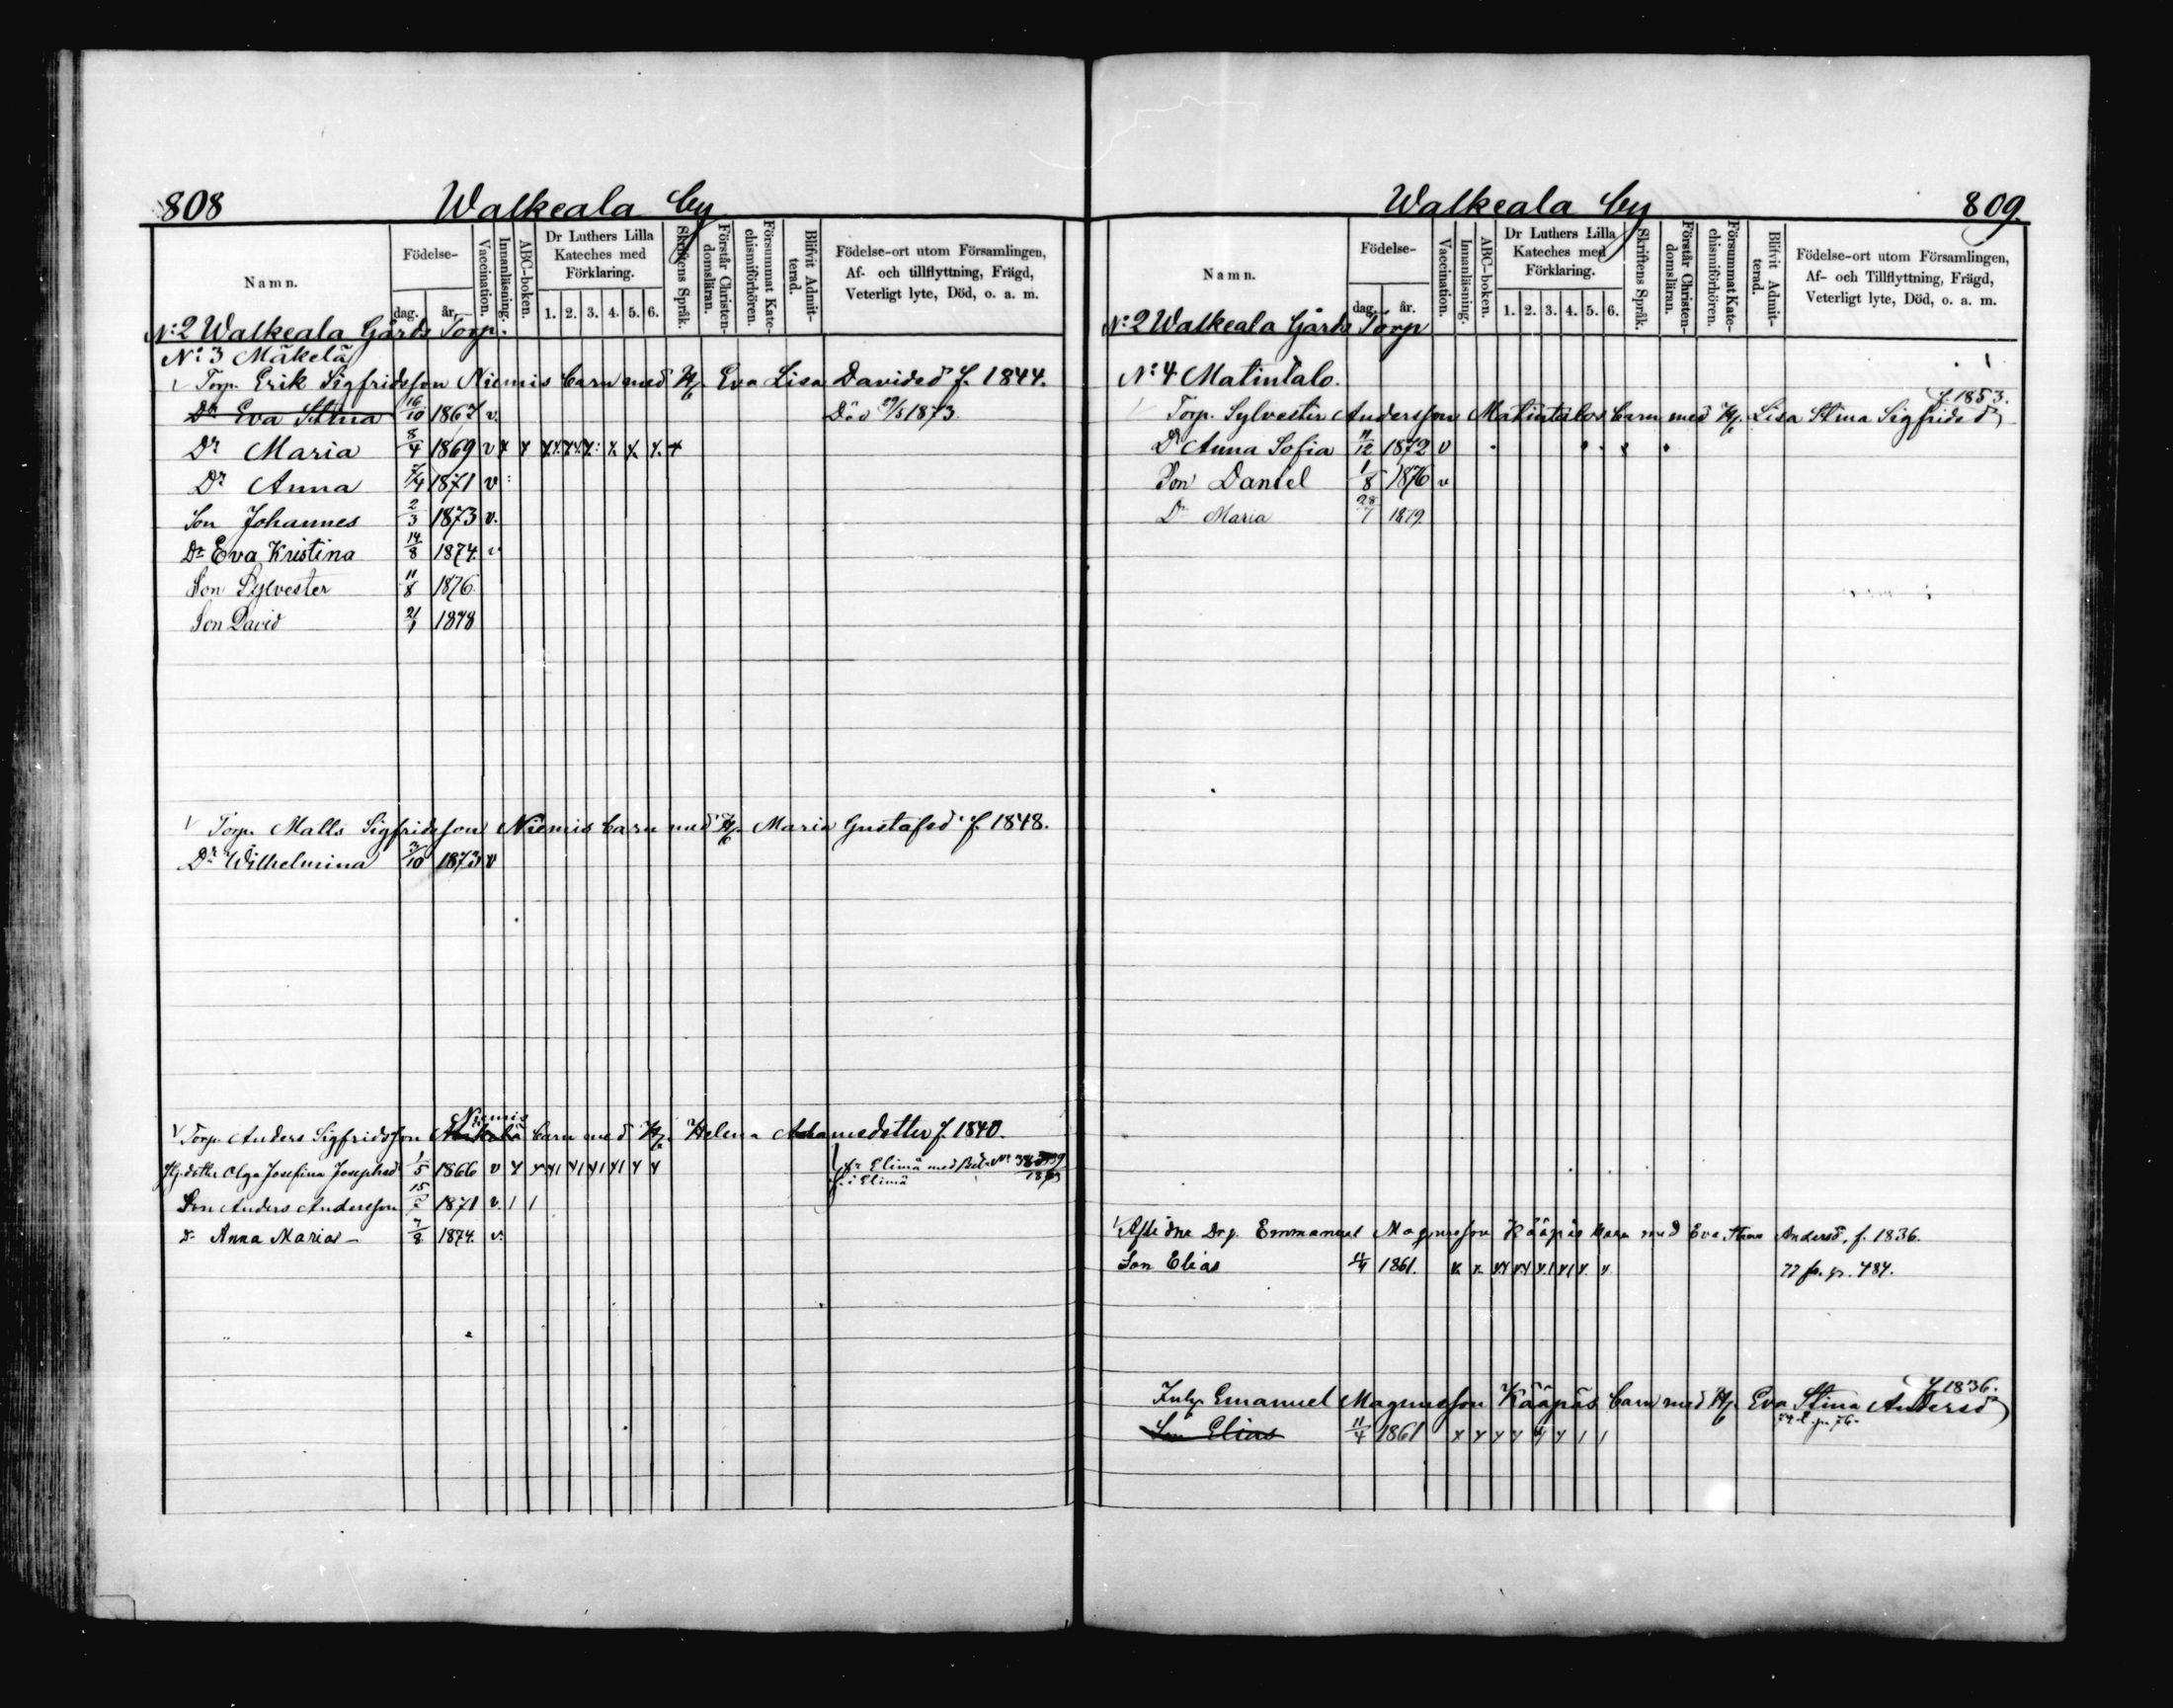 808 Walkeala by
Namn. Födelse- dag. år. Vaccination. Innanläsning. ABC-boken. Dr Luthers Lilla Kateches med Förklaring. 1. 2. 3. 4. 5. 6. Skriftens Språk. Förstår Christendomsläran. Försummat Katechismiförhören. Blifvit Admitterad. Födelse-ort utom Församlingen, Af- och tillflyttning, Frägd, Veterligt lyte, Död, o. a. m.
N:2 Walkeala Gårds Torp.
N:3 Mäkelä
Torp. Erik Sigfridsson Niemis barn med H. Eva Lisa Davidsd f. 1844.
Dr Eva Stina 16/10 1867 v. Död 29/5 1873.
Dr Maria 8/4 1869 v
Dr Anna 1871 v
Son Johannes 2/3 1873 v.
Dr Eva Kristina 14/8 1874 v
Son Sylvester 11/8 1876.
Son David 1878
Torp. Matts Sigfridsson Niemis barn med H. Maria Gustafsd f. 1848.
Dr Wilhelmina 3/10 1873 v
Niemis
Torp. Anders Sigfridsson barn med H. Helena f. 1840.
Olga Josefina Josephsd 1/5 1866 v fr Elimä med
f. i Elimä
Son Anders Andersson 15 1871 v.
Dr Anna Maria 7/8 1874. v.
Walkeala by 809.
Namn. Födelse- dag. år. Vaccination. Innanläsning. ABC-boken. Dr Luthers Lilla Kateches med Förklaring. 1. 2. 3. 4. 5. 6. Skriftens Språk. Förstår Christendomsläran. Försummat Katechismiförhören. Blifvit Admitterad. Födelse-ort utom Församlingen, Af- och Tillflyttning, Frägd, Veterligt lyte, Död, o. a. m.
N:2 Walkeala Gårds Torp
N:4 Matintalo.
f. 1853.
Torp. Sylvester Andersson Matintalos barn med H. Lisa Stina Sigfridsd
Dr Anna Sofia 11/12 1872 v
Son Daniel 1/8 1876 v
Dr Maria 28/7 1879.
Aflidne Emmanuel Magnusson Kääpäs barn med Eva Stina Andersd, f. 1836.
Son Elias 11/4 1861. 77 fr. p. 484.
f. 1836.
Inhy. Emanuel Magnusson Kääpäs barn med H. Eva Stina Andersd
Son Elias 11/4 1861